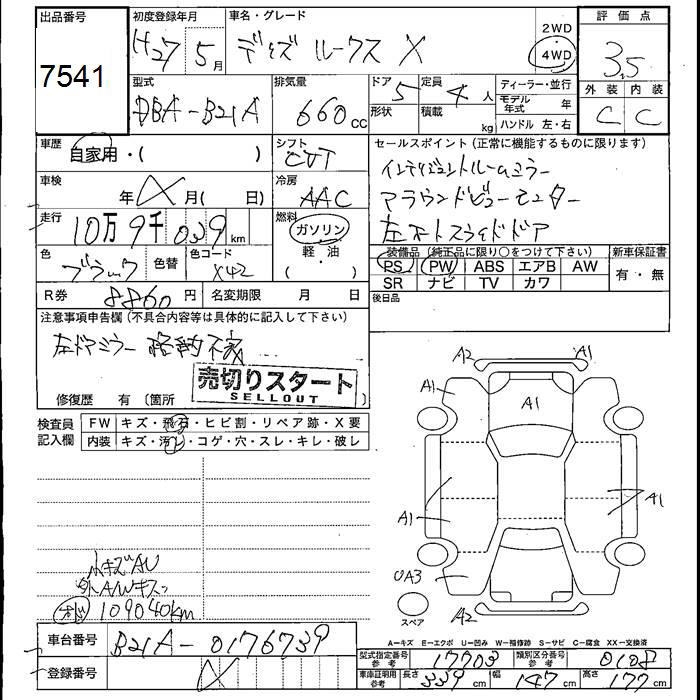 出品番号 初度登録年月 車名・グレード 評価点
7541 H27 5月 デイズ ルークス X 2WD 4WD 3.5
型式 排気量 ドア 定員 ディーラー・並行 外装 内装
DBA-B21A 660cc 5 4人 モデル年式 年 C C
形状 積載 kg ハンドル 左・右
車歴 自家用・( ) シフト CVT
セールスポイント(正常に機能するものに限ります)
インテリジェントルームミラー
車検 年 X 月( 日) 冷房 AAC
アラウンドビューモニター
走行 10万9千039km 燃料 ガソリン 軽・油 ・( )
左オートスライドドア
色 ブラック 色替 色コード X42
装備品(純正品に限り○をつけて下さい) 新車保証書
PS PW ABS エアB AW 有・無
SR ナビ TV カワ
R券 8860円 名変期限 月 日
後日品
注意事項申告欄(不具合内容等は具体的に記入して下さい)
左ドアミラー 格納不良
売切りスタート
SELLOUT
修復歴 有〔箇所 〕
検査員記入欄 FW キズ・飛石・ヒビ割・リペア跡・X要
内装 キズ・汚れ・コゲ・穴・スレ・キレ・破レ
A2 A1
A1 A1
A1 A1
UA3 A2
スペア
小キズAU
外A/Wキズ
109040km
A=キズ E=エクボ U=凹み W=補修跡 S=サビ C=腐食 XX=交換済
車台番号 B21A-0176739
型式指定番号 参考 17703 類別区分番号 参考 0108
登録番号
車庫証明用 参考 長さ 339cm 幅 147cm 高さ 177cm